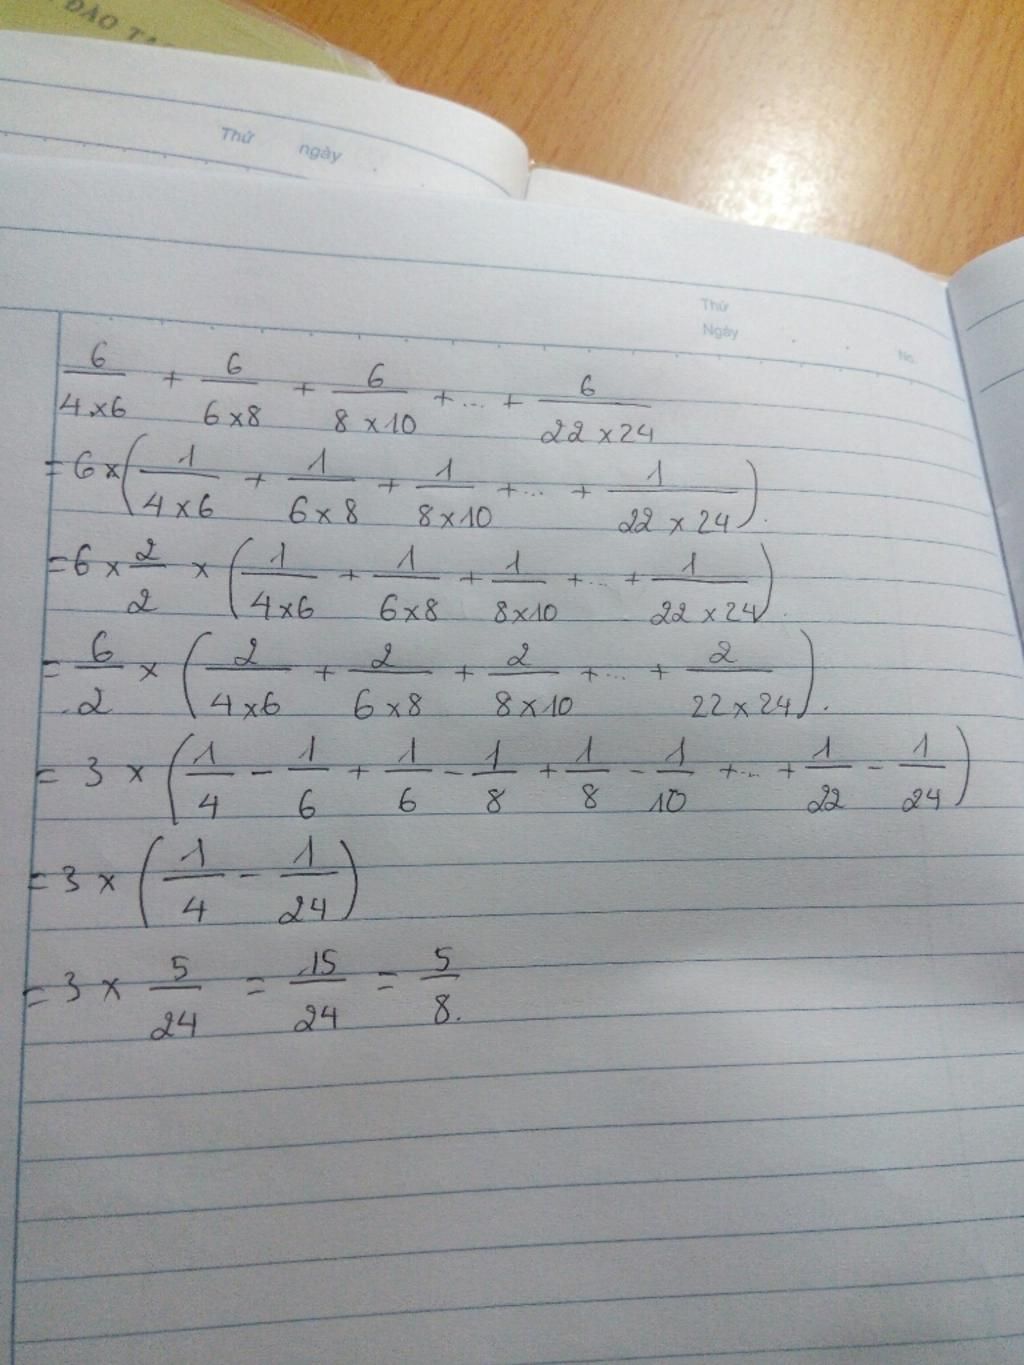 ĐÀO TẠ
Thứ ngày
Thứ
Ngày
No.
6/(4×6) + 6/(6×8) + 6/(8×10) + ... + 6/(22×24)
= 6 × (1/(4×6) + 1/(6×8) + 1/(8×10) + ... + 1/(22×24)).
= 6 × 2/2 × (1/(4×6) + 1/(6×8) + 1/(8×10) + ... + 1/(22×24)).
= 6/2 × (2/(4×6) + 2/(6×8) + 2/(8×10) + ... + 2/(22×24)).
= 3 × (1/4 - 1/6 + 1/6 - 1/8 + 1/8 - 1/10 + ... + 1/22 - 1/24)
= 3 × (1/4 - 1/24)
= 3 × 5/24 = 15/24 = 5/8.